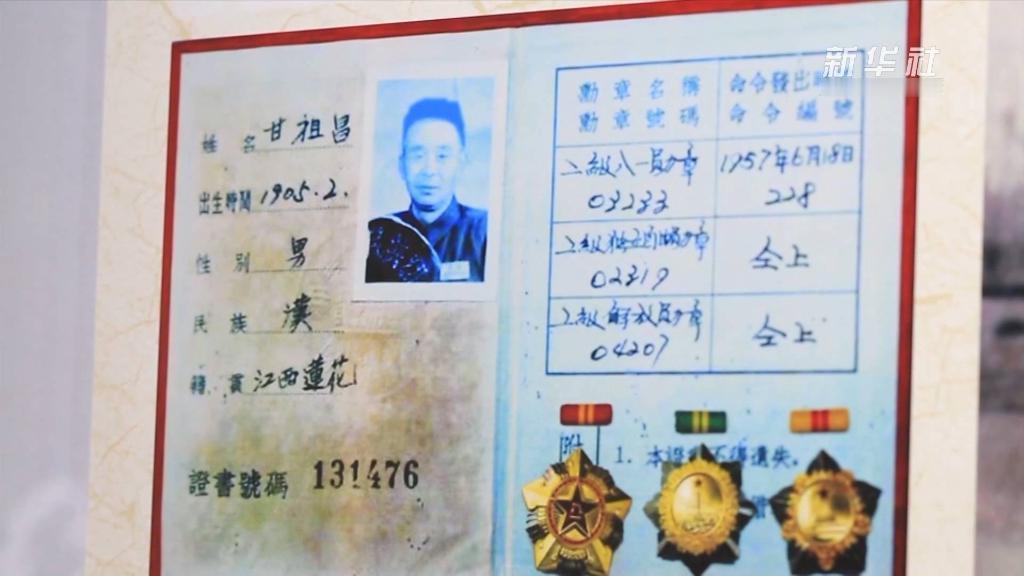 新华社
姓名 甘祖昌
出生時間 1905.2.
性別 男
民族 漢
籍貫 江西蓮花
證書號碼 131476
勳章名稱 命令發出
勳章號碼 命令編號
二級八一勋章 1957年6月18日
03233 228
二級独立自由勋章 仝上
02319
二級解放勋章 仝上
04207
附
1. 本證 不得遺失.